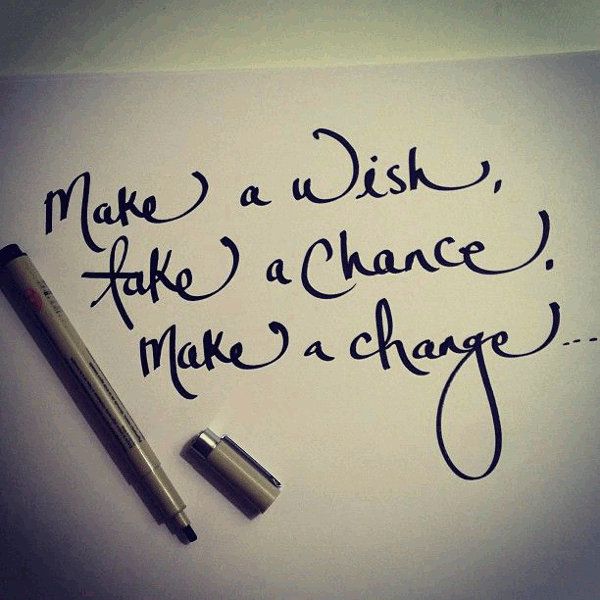 Make a wish,
take a chance,
Make a change....